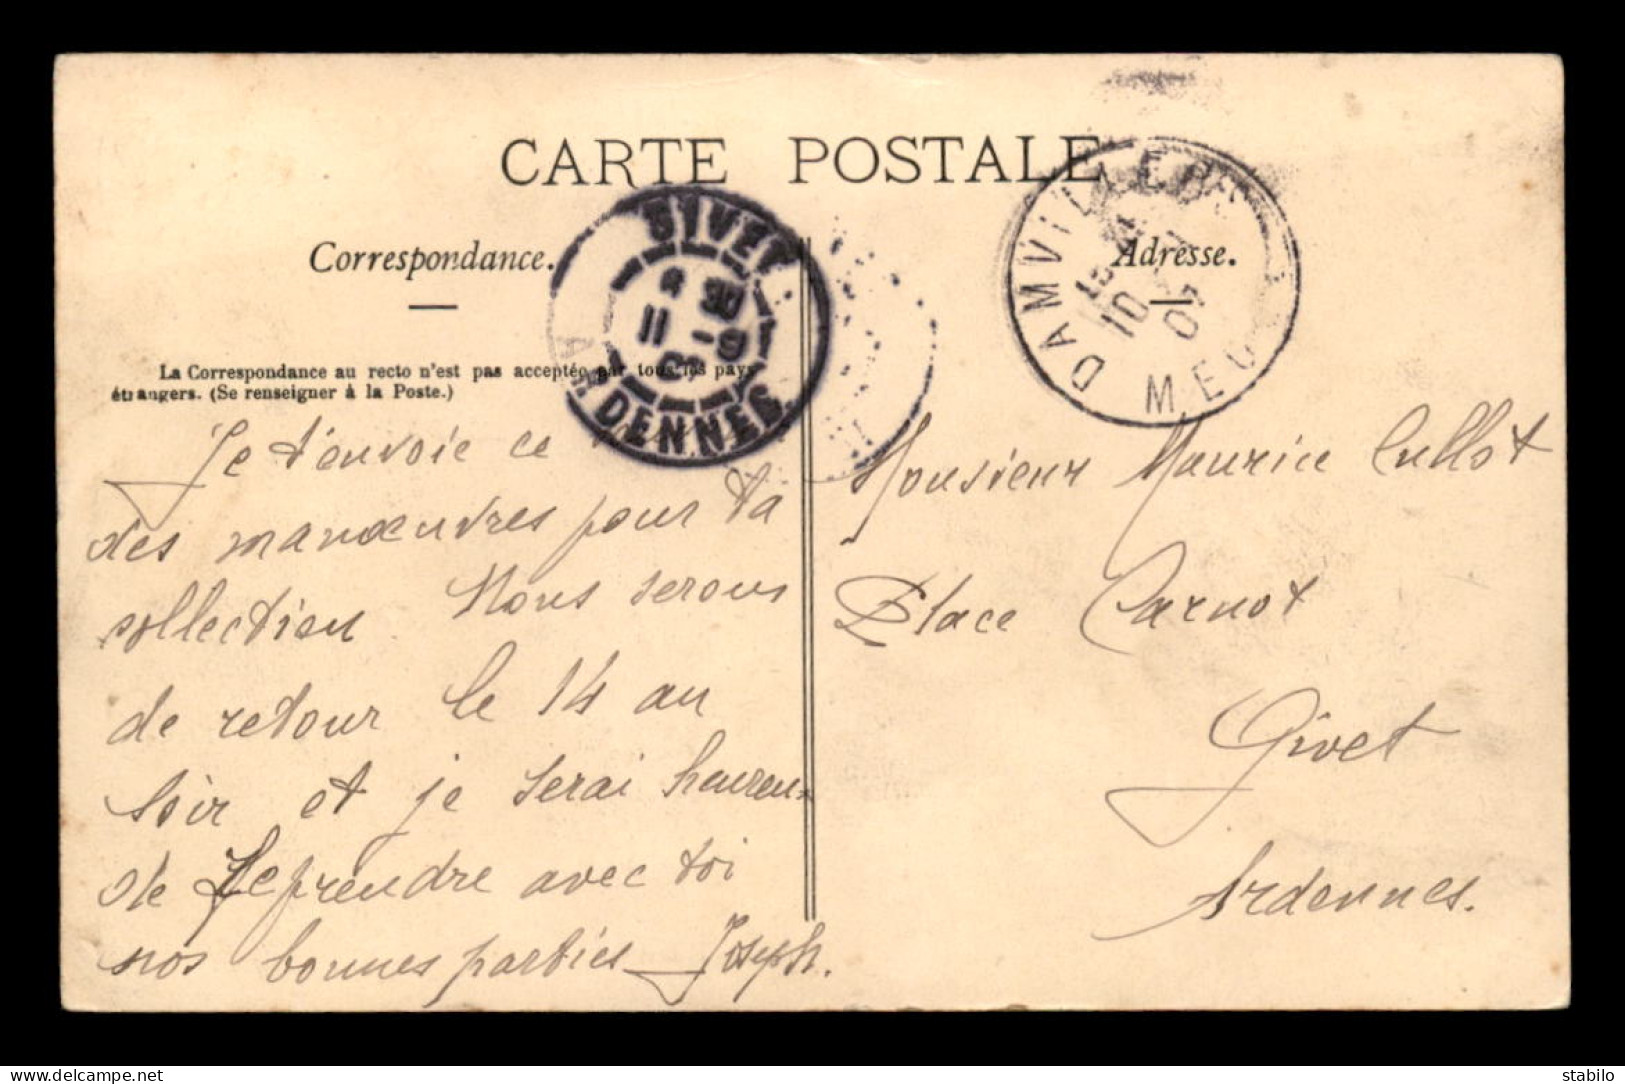 CARTE POSTALE
Correspondance.
Adresse.
La Correspondance au recto n'est pas acceptée par tous les pays
étrangers. (Se renseigner à la Poste.)
GIVET
11 -9
ARDENNES
DAMVILLERS
10
07
MEU
Je t'envoie ce
des manœuvres pour ta
collection Nous serons
de retour le 14 au
soir et je serai heureux
de reprendre avec toi
nos bonnes parties Joseph.
Monsieur Maurice Cullot
Place Carnot
Givet
Ardennes.
delcampe.net
stabilo